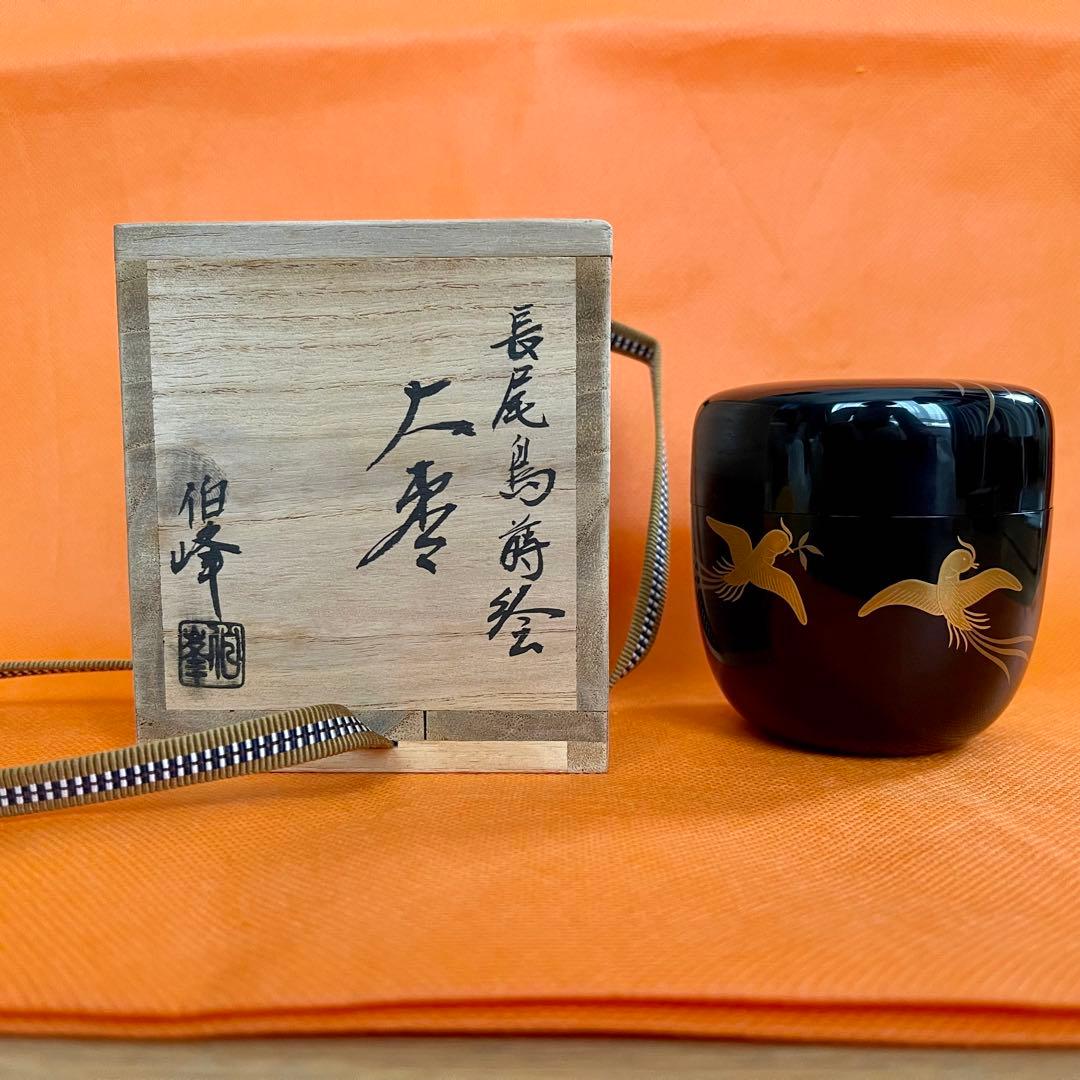 長尾鳥蒔絵
大棗
伯峰
伯峯